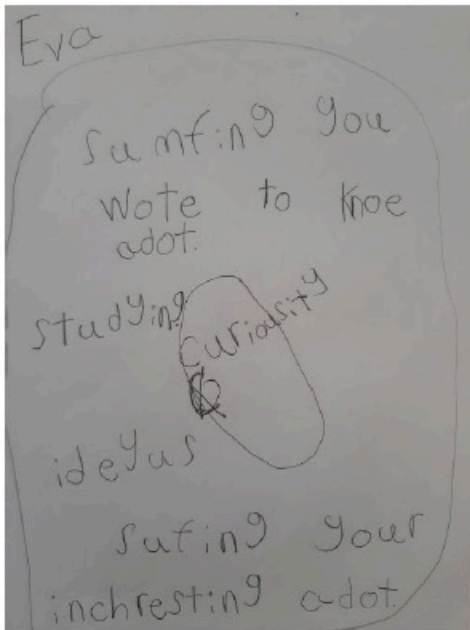 Eva
sumfing you
wote to knoe
adot.
studying
curiousity
ideyus
sufing your
inchresting adot.